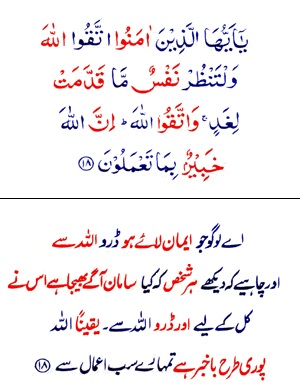 يٰۤاَيُّهَا الَّذِيْنَ اٰمَنُوا اتَّقُوا اللّٰهَ
وَلْتَنْظُرْ نَفْسٌ مَّا قَدَّمَتْ
لِغَدٍ ۚ وَاتَّقُوا اللّٰهَ ؕ اِنَّ اللّٰهَ
خَبِيْرٌۢ بِمَا تَعْمَلُوْنَ ۝۱۸
اے لوگو جو ایمان لائے ہو ڈرو اللہ سے
اور چاہیے کہ دیکھے ہر شخص کہ کیا سامان آگے بھیجا ہے اس نے
کل کے لیے اور ڈرو اللہ سے۔ یقیناً اللہ
پوری طرح باخبر ہے تمہارے سب اعمال سے ۝۱۸